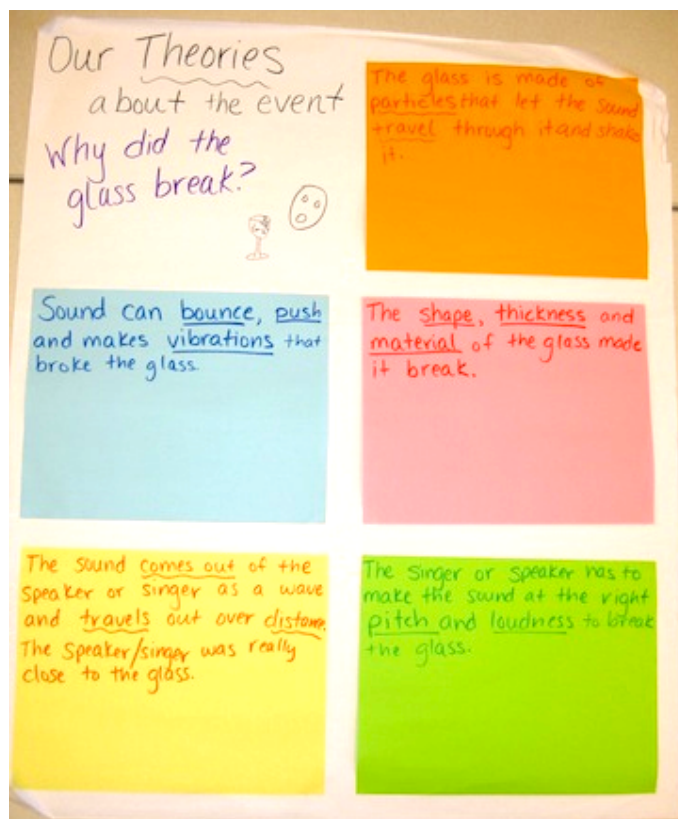 Our Theories
about the event
Why did the
glass break?
The glass is made of
particles that let the sound
travel through it and shake
it.
Sound can bounce, push
and makes vibrations that
broke the glass.
The shape, thickness and
material of the glass made
it break.
The sound comes out of the
speaker or singer as a wave
and travels out over distance.
The speaker/singer was really
close to the glass.
The singer or speaker has to
make the sound at the right
pitch and loudness to break
the glass.